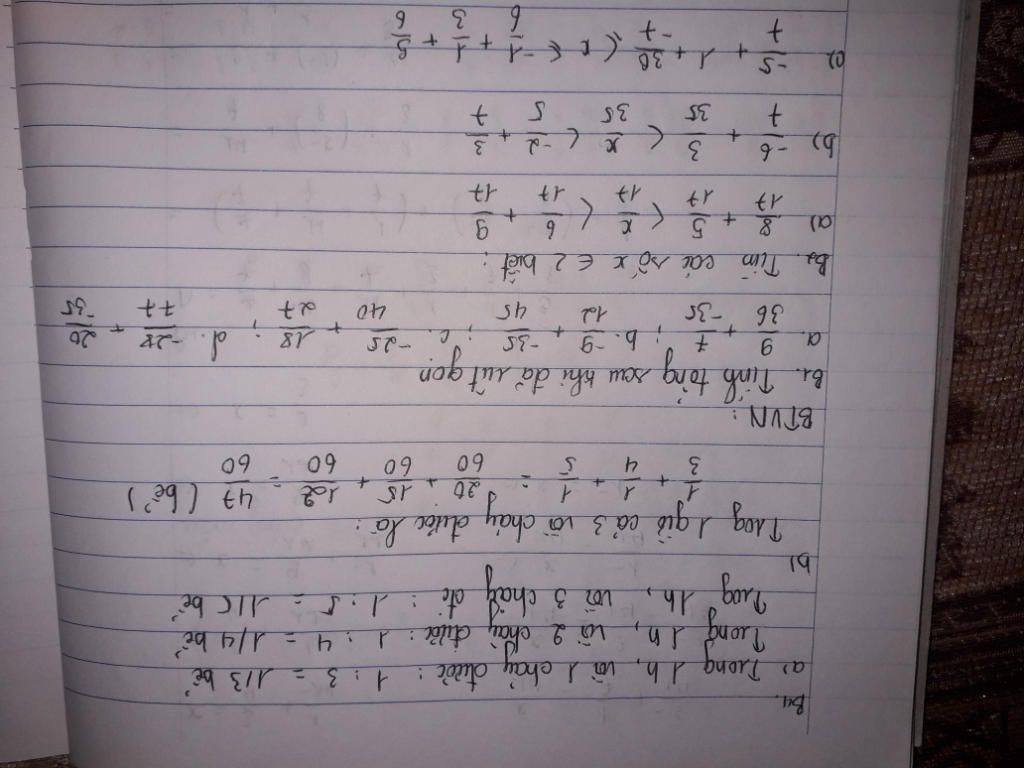 B4.
a) Trong 1h, vòi 1 chảy được : 1 : 3 = 1/3 bể
Trong 1h, vòi 2 chảy được : 1 : 4 = 1/4 bể
Trog 1h, vòi 3 chảy đc : 1 : 5 = 1/5 bể
b)
Trog 1 giờ cả 3 vòi chảy được là :
1/3 + 1/4 + 1/5 = 20/60 + 15/60 + 12/60 = 47/60 (bể)
BTVN :
B1. Tính tổng sau khi đã rút gọn
a. 9/36 + 7/-35 ; b. -9/12 + -35/45 ; c. -25/40 + 18/27 ; d. -28/77 + 20/-35
B2. Tìm các số x ∈ Z biết :
a) 8/17 + 5/17 < x/17 < 6/17 + 9/17
b) -6/7 + 3/35 < x/35 < -2/5 + 3/7
c) -5/7 + 1 + 30/-7 ≤ x ≤ -1/6 + 1/3 + 5/6